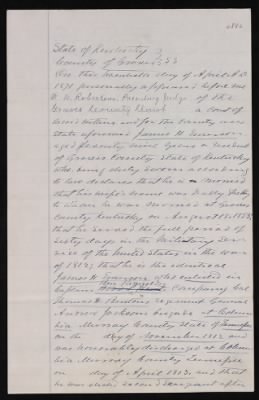 State of Kentucky
County of Graves } SS
On this twentieth day of April A.D.
1871 personally appeared before me
W. H. Robertson Presiding Judge of the
Graves County Court a Court of
record within and for the County and
State aforesaid James H.
aged seventy nine years a resident
of Graves County State of Kentucky
who being duly sworn according
to law declares that he is married
that his wife's name was Polly
to whom he was married at Graves
County Kentucky on August 18
that he served the full period of
sixty days in the Military Ser-
vice of the United States in the war
of 1812; that he is the identical
James H. who enlisted in
Captain Company Col
Thomas H. Benton's regiment General
Andrew Jackson's brigade at Colum-
bia Murray County State of Tennessee
on the day of November 1812 and
was honorably discharged at Colum-
bia Murray County Tennessee
on day of April 1813, and that
he was Sergeant after